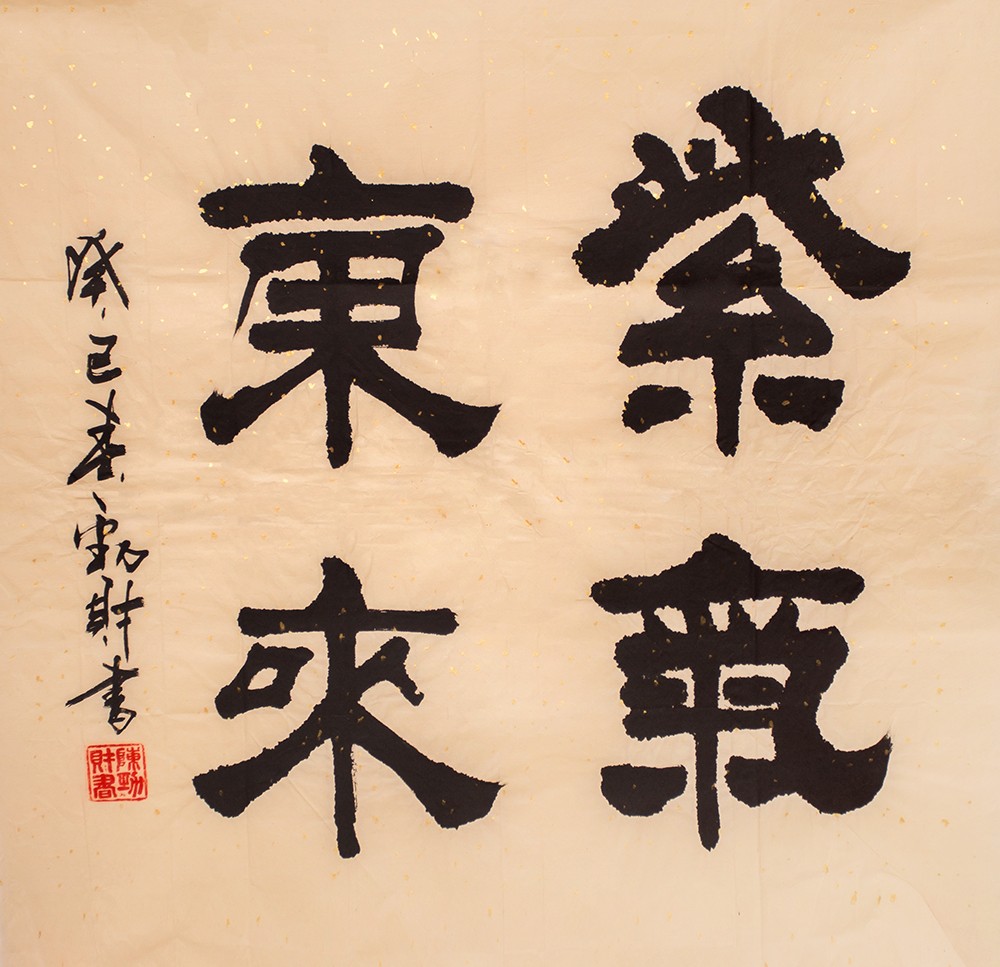 紫氣
東來
癸巳春勁財書
陳勁財書